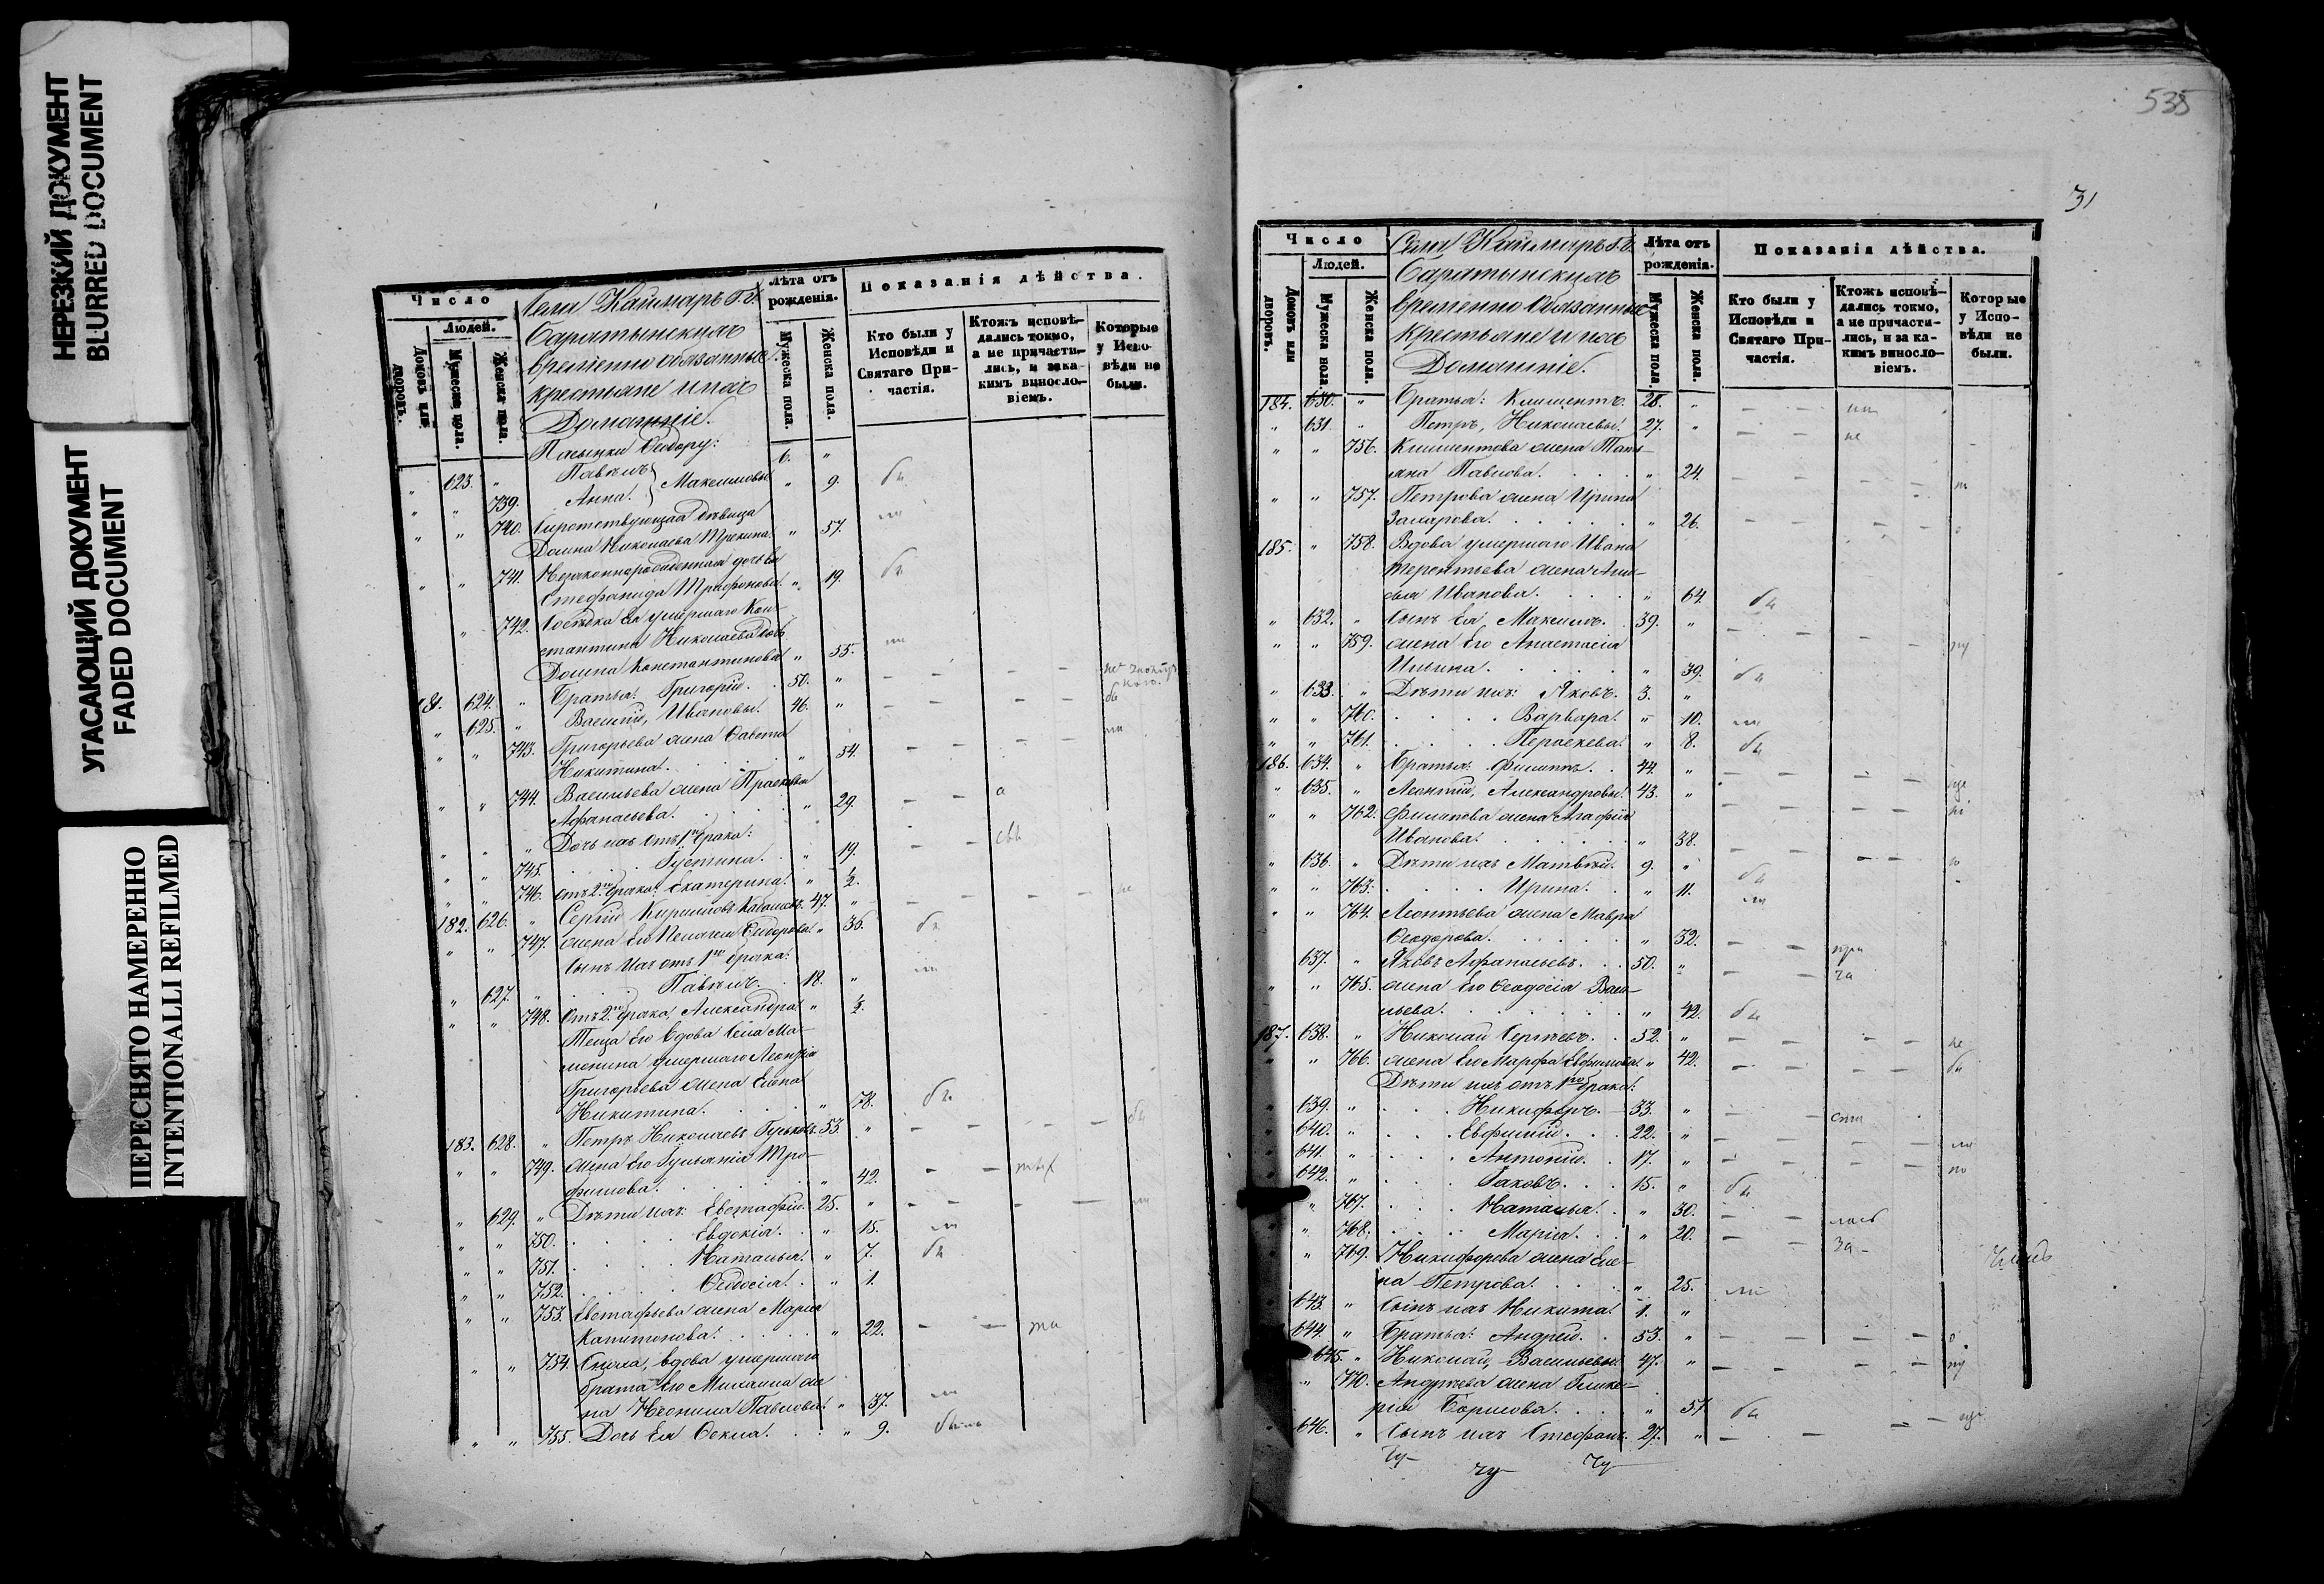 НЕРЕЗКИЙ ДОКУМЕНТ
BLURRED DOCUMENT
УГАСАЮЩИЙ ДОКУМЕНТ
FADED DOCUMENT
ПЕРЕСНЯТО НАМЕРЕННО
INTENTIONALLI REFILMED
Число
Людей.
Домовъ или дворовъ.
Мужеска пола.
Женска пола.
Села Каймаръ Г. г.
Саратынскихъ
временно обязанные
крестьяне и ихъ
Домашніе.
Лѣта отъ рожденія.
Мужеска пола.
Женска пола.
Показанія дѣйства.
Кто были у Исповѣди и Святаго Причастія.
Ктожъ исповѣдались токмо, а не причастились, и за какимъ винословіемъ.
Которые у Исповѣди не были.
Пасынки Ѳеодору:
" 623. " Павелъ 6. "
" " 739. Анна. } Максимовы " 9.
" " 740. Сиротствующая дѣвица
Домна Николаева " 57.
" " 741. Незаконнорожденная дочь Ея
Стефанида Трифонова " 19.
" 742. Сосѣдка Ея умершаго Кон-
стантина Николаева дочь
Домна Константинова " 55.
181. 624. " Братья: Григорій. 50. "
" 625. " Василій, Ивановы. 46. "
" " 743. Григорьева жена Савета
Никитина. " 54.
" " 744. Васильева жена Прасковья
Афанасьева. " 29.
Дочь ихъ отъ 1го брака:
" " 745. Густина. " 19.
" " 746. Отъ 2го брака: Екатерина. " ½.
182. 626. " Сергій Кириловъ 47. "
" " 747. жена Его Пелагея Сидорова " 36.
Сынъ ихъ отъ 1го брака:
" 627. " Павелъ. 18. "
" " 748. Отъ 2го брака, Александра "
Теща Его вдова
умершаго
Григорьева жена Елена
Никитина. " 78.
183. 628. " Петръ Николаевъ 53. "
" " 749. жена Его Гульянія Тро-
фимова. " 42.
" 629. " Дѣти ихъ: Евстафій. 25. "
" " 750. Евдокія. " 15.
" " 751. Наталья. " 7.
" " 752. Ѳеодосія. " 1.
" " 753. Евстафьева жена Марья
Капитонова. " 22.
" " 754. Сноха, вдова умершаго
брата Его Михаила же-
на Неонила Павлова. " 37.
" " 755. Дочь Ея Ѳекла. " 9.
535
31
Число
Людей.
Домовъ или дворовъ.
Мужеска пола.
Женска пола.
Села Каймаръ Г. г.
Саратынскихъ
временно обязанные
крестьяне и ихъ
Домашніе.
Лѣта отъ рожденія.
Мужеска пола.
Женска пола.
Показанія дѣйства.
Кто были у Исповѣди и Святаго Причастія.
Ктожъ исповѣдались токмо, а не причастились, и за какимъ винословіемъ.
Которые у Исповѣди не были.
184. 630. " Братья: Климентъ. 28. "
" 631. " Петръ, Николаевы. 27. "
" " 756. Климентова жена Тать-
яна Павлова. " 24.
" " 757. Петрова жена Ирина
Захарова. " 26.
185. " 758. Вдова умершаго Ивана
Терентьева жена
Иванова. " 64.
" 632. " Сынъ Ея Максимъ. 39. "
" " 759. жена Его Анастасія
Ильина. " 39.
" 633. " Дѣти ихъ: Яковъ. 3. "
" " 760. Варвара. " 10.
" " 761. Параскева. " 8.
186. 634. " Братья: Филиппъ. 44. "
" 635. " Леонтій, Александровы. 43. "
" " 762. Филипова жена Агафія
Иванова. " 38.
" 636. " Дѣти ихъ Матвѣй. 9. "
" " 763. Ирина. " 11.
" " 764. Леонтьева жена Мавра
Ѳеодорова. " 32.
637. " Яковъ Афанасьевъ. 50. "
" " 765. жена Его Ѳеодосія Васи-
льева. " 42.
187. 638. " Николай Сергѣевъ. 52. "
" 766. жена Его Марфа Евфимова " 42.
Дѣти ихъ отъ 1го брака:
639. " Никифоръ. 33. "
640. " Евфимій. 22. "
641. " Антоній. 17. "
642. " Іаковъ. 15. "
" 767. Наталья. " 30.
" 768. Марія. " 20.
" 769. Никифорова жена Еле-
на Петрова. " 25.
643. " Сынъ ихъ Никита. 1. "
644. " Братья: Андрей. 53. "
645. " Николай, Васильевы. 47. "
" 770. Андреева жена Глике-
рія Борисова. " 51.
646. " Сынъ ихъ Стефанъ. 27. "